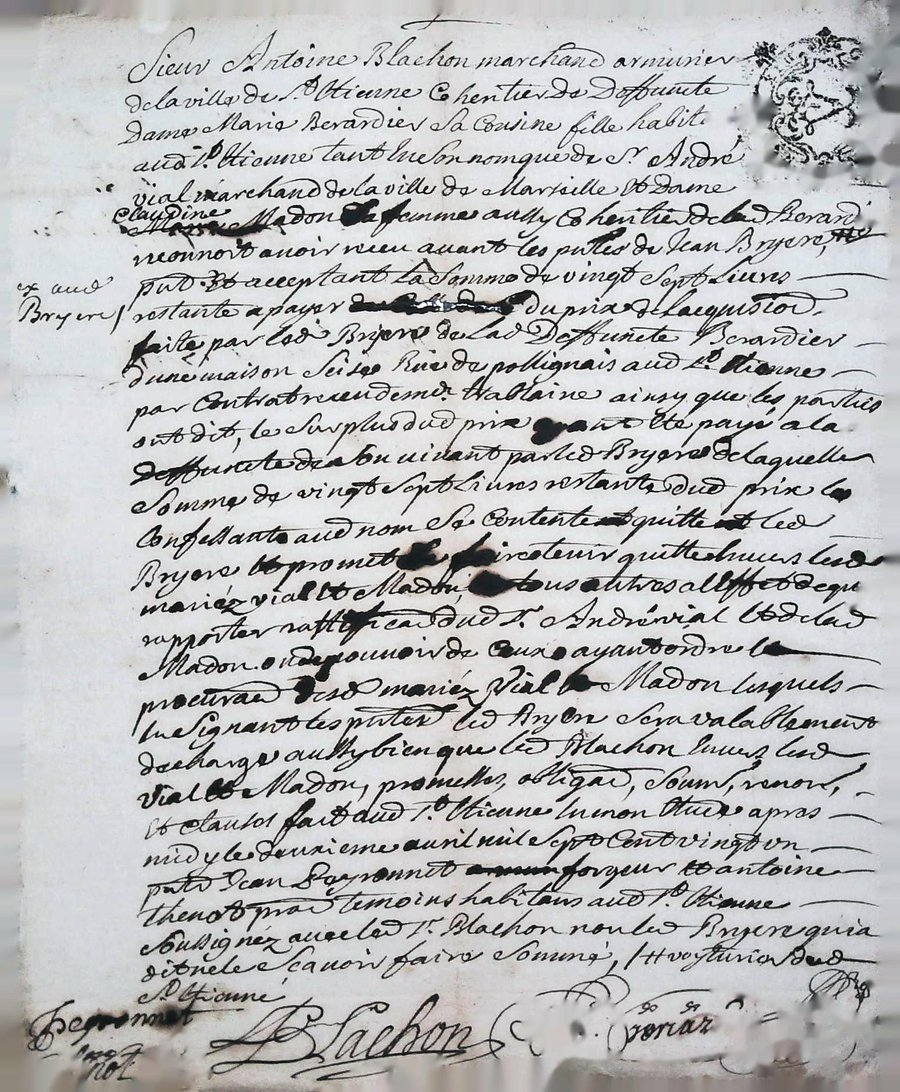 Sieur Antoine Blachon marchand armurier
de la ville de St Etienne Coheritier de Deffuncte
Dame Marie Berardier Sa Cousine fille habite
aud St Etienne tant en son nom que de Sr André
vial marchand de la ville de Marseille Et Dame
Claudine
Madon Sa femme aussy Coheritier de lad Berard
reconnoit avoir receu avant les pntes de Jean Bryere,
pnt Et acceptant La Somme de vingt Sept Livres
ex aud
Bryere /
restante a payer du prix de Lacquisition
faite par led Bryere de Lad Deffuncte Berardier
dune maison Scise Rue de pollignais aud St Etienne
par Contrat receu de me Trablaine ainsy que les parties
ont dit, le Surplus dud prix ayant Eté payé a la
deffuncte de son vivant par led Bryere de laquelle
Somme de vingt Sept Livres restante dud prix le
Confessant aud nom Se Contente et quitte led
Bryere Et promet le faire tenir quitte Envers lesd
mariéz vial Et Madon, Et tous autres a Leffet de quoy
rapporter rattiffica͠on dud Sr André vial Et de lad
Madon ou de pouvoir de Ceux ayant ordre
procura͠on desd mariéz Vial Et Madon lesquels
En Signant les pntes led Bryere Sera valablement
decharge aussy bien que led Blachon Envers lesd
Vial Et Madon, promesses, obliga͠on, Soums, renons,
Et clauses fait aud St Etienne En mon Etude apres
midy le deuxieme avril mil Sept Cent vingt un
pnts Jean Peyronnet forgeur Et antoine
thenot prat temoins habitans aud St Etienne
Soussignéz avec led Sr Blachon non led Bryere qui a
dit ne le Scavoir faire Sommé, /# voyturier dud
St Etienne
Peyronnet
Blachon
not